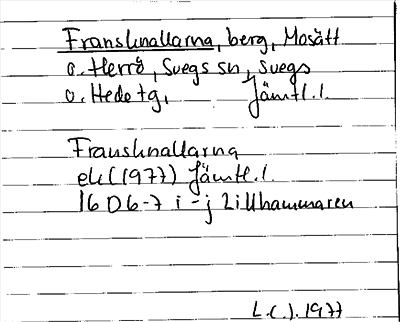 Fransknallarna, berg, Mosätt
o. Herrö, Svegs sn, Svegs
o. Hede tg, Jämtl.l.
Fransknallarna
ek (1977) Jämtl.l.
16 D 6-7 i-j Lillhammaren
L.( ). 1977